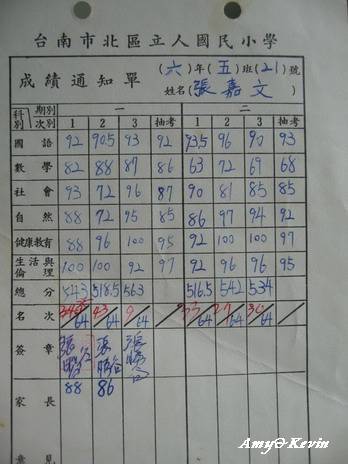 台南市北區立人國民小學
成績通知單
(六)年(五)班(21)號
姓名 張嘉文
科別 期別 次別 一 1 2 3 抽考 二 1 2 3 抽考
國語 92 90.5 93 92 93.5 96 90 93
數學 82 88 87 86 63 72 69 68
社會 93 72 96 87 90 81 85 85
自然 88 72 95 85 86 97 94 92
健康教育 88 96 100 95 92 100 100 97
生活與倫理 100 100 92 97 92 96 96 95
總分 543 518.5 563 516.5 542 534
名次 /64 43/64 9/64 /64 /64 /64
簽章
家長 88 86
意見
Amy&Kevin